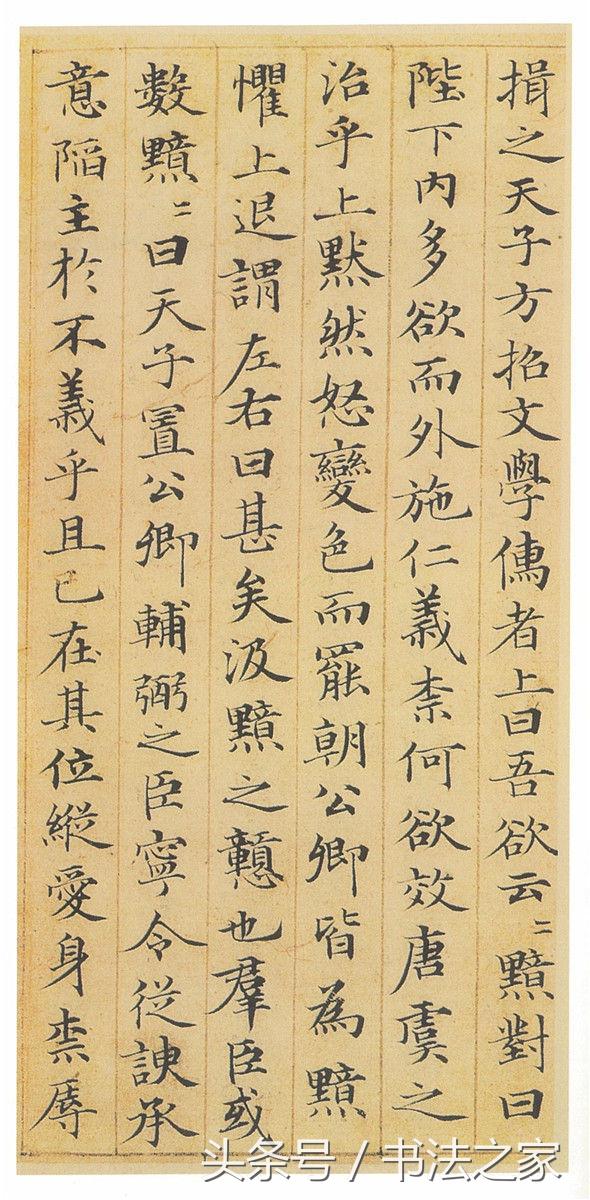 揖之天子方招文學儁者上曰吾欲云〻黯對曰
陛下內多欲而外施仁義柰何欲效唐虞之
治乎上默然怒變色而罷朝公卿皆為黯
懼上退謂左右曰甚矣汲黯之戇也羣臣或
數黯〻曰天子置公卿輔弼之臣寧令從諛承
意陷主於不義乎且已在其位縱愛身柰辱
头条号 / 书法之家